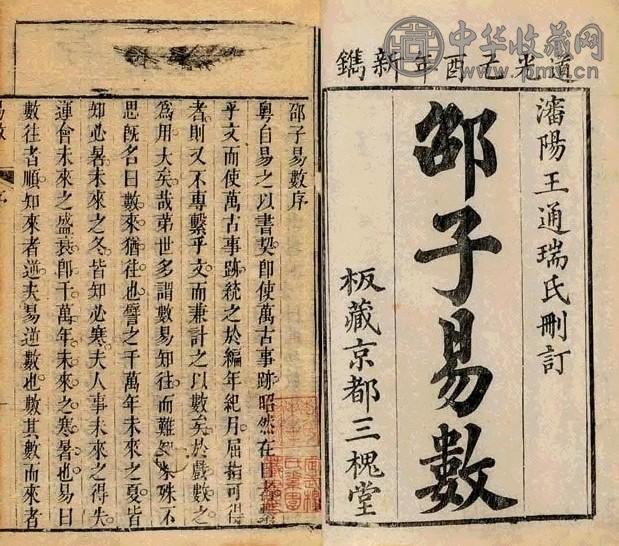 中华收藏网
道光酉年新鐫
瀋陽王通瑞氏刪訂
邵子易數
板藏京都三槐堂
邵子易數序
粵自易之以書契即使萬古事跡昭然在目
乎文而使萬古事跡統之於編年紀月屈指可得
者則又不專繫乎文而兼計之以數矣於戲數之
爲用大矣哉第世多謂數易知往而難來殊不
思旣名曰數來猶往也譬之千萬年未來之夏皆
知必暑未來之冬皆知必寒夫人事未來之得失
運會未來之盛衰卽千萬年未來之寒暑也易曰
數往者順知來者逆夫易逆數也數其數而來者
易數 序